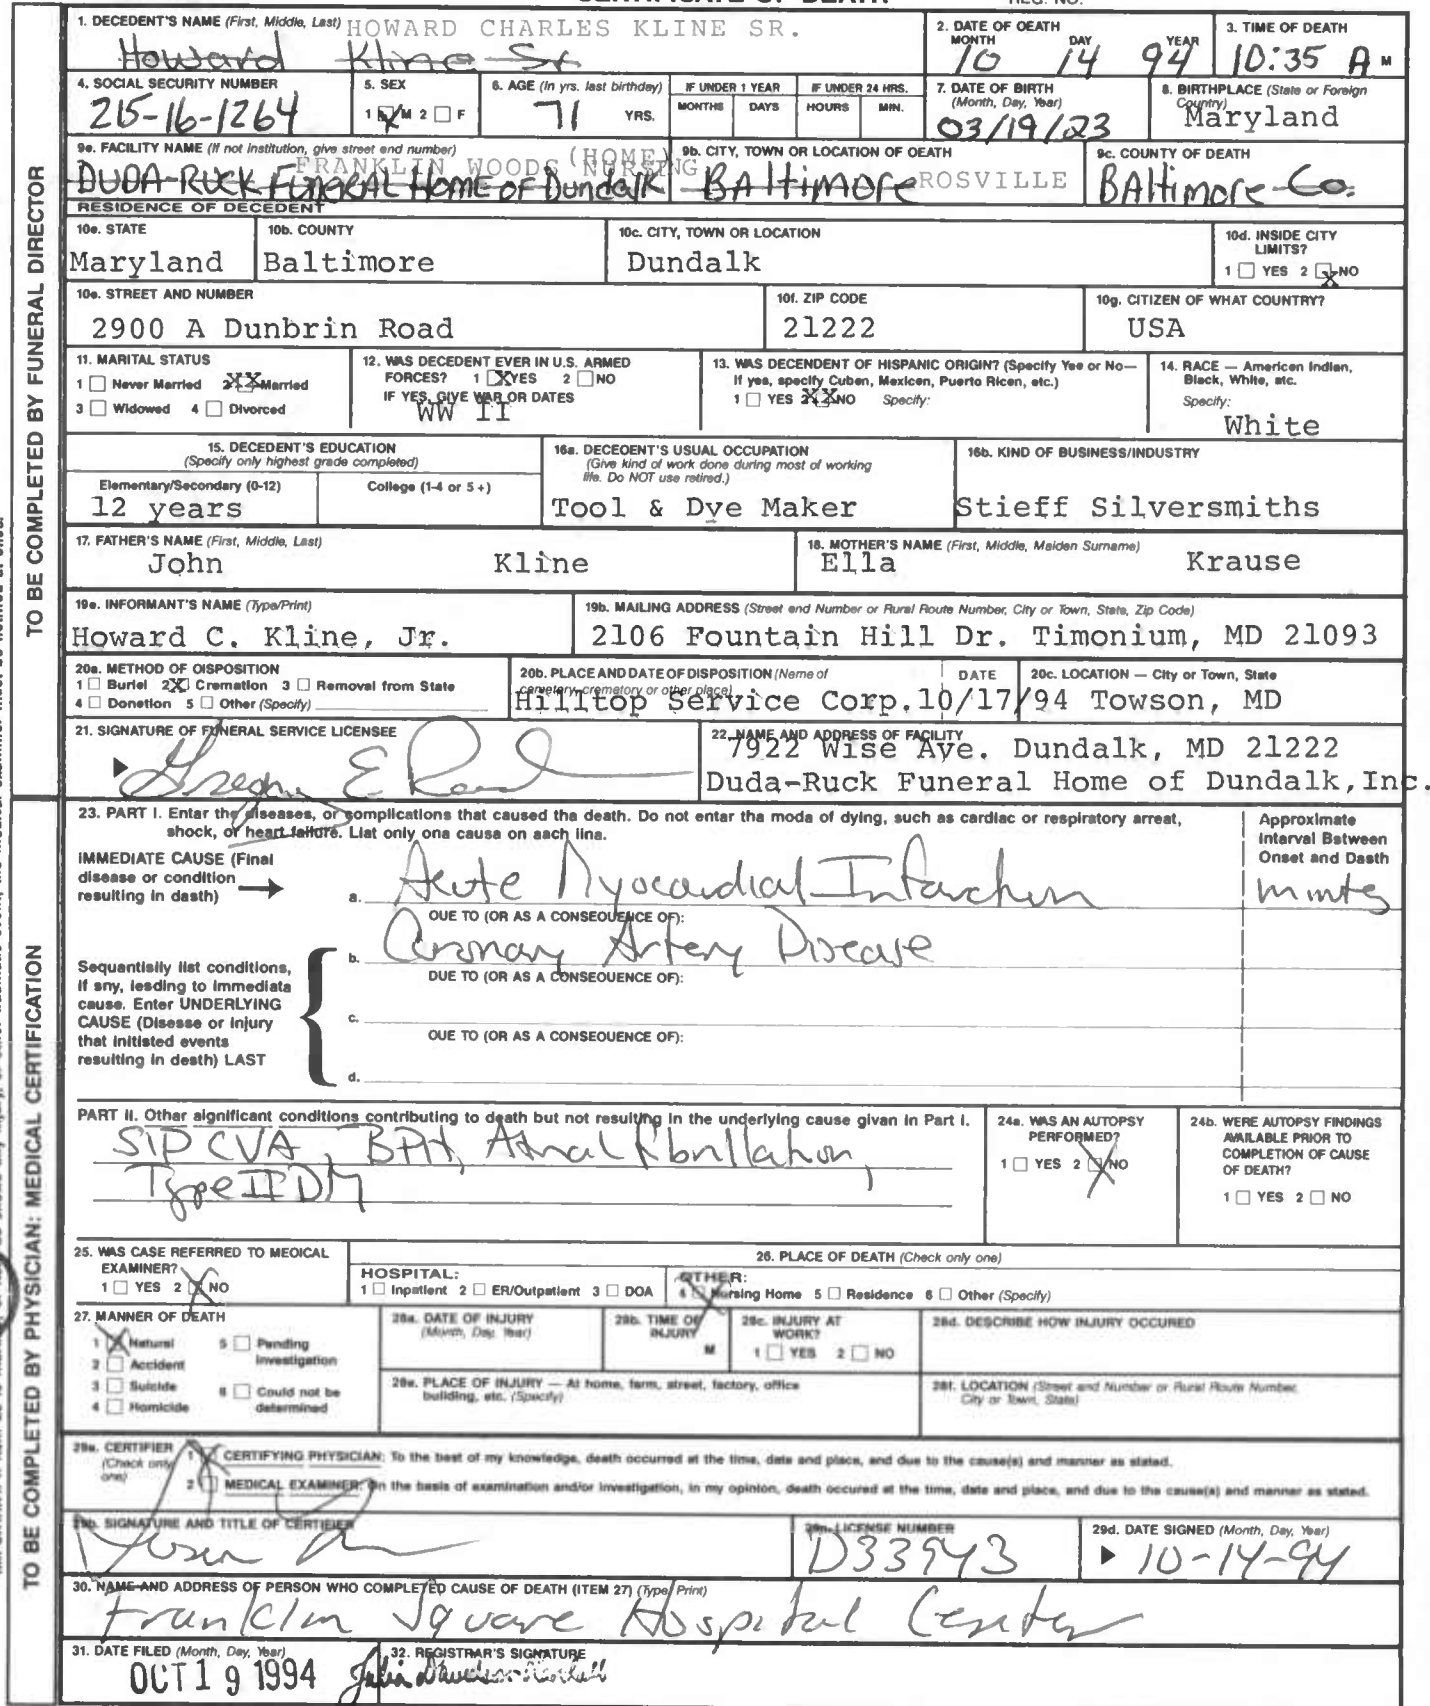 CERTIFICATE OF DEATH REG. NO.
1. DECEDENT'S NAME (First, Middle, Last) HOWARD CHARLES KLINE SR.
Howard Kline Sr
2. DATE OF DEATH
MONTH DAY YEAR
10 14 94
3. TIME OF DEATH
10:35 A M
4. SOCIAL SECURITY NUMBER
215-16-1264
5. SEX
1 M 2 F
6. AGE (In yrs. last birthday)
71 YRS.
IF UNDER 1 YEAR
MONTHS DAYS
IF UNDER 24 HRS.
HOURS MIN.
7. DATE OF BIRTH
(Month, Day, Year)
03/19/23
8. BIRTHPLACE (State or Foreign
Country)
Maryland
9a. FACILITY NAME (If not institution, give street and number)
FRANKLIN WOODS (HOME) NURSING
DUDA-RUCK FUNERAL HOME OF Dundalk
9b. CITY, TOWN OR LOCATION OF DEATH
BAltimore ROSVILLE
9c. COUNTY OF DEATH
BAltimore Co.
RESIDENCE OF DECEDENT
10a. STATE
Maryland
10b. COUNTY
Baltimore
10c. CITY, TOWN OR LOCATION
Dundalk
10d. INSIDE CITY
LIMITS?
1 YES 2 X NO
10e. STREET AND NUMBER
2900 A Dunbrin Road
10f. ZIP CODE
21222
10g. CITIZEN OF WHAT COUNTRY?
USA
11. MARITAL STATUS
1 Never Married 2 XX Married
3 Widowed 4 Divorced
12. WAS DECEDENT EVER IN U.S. ARMED
FORCES? 1 X YES 2 NO
IF YES, GIVE WAR OR DATES
WW II
13. WAS DECENDENT OF HISPANIC ORIGIN? (Specify Yes or No—
If yes, specify Cuban, Mexican, Puerto Rican, etc.)
1 YES 2 XX NO Specify:
14. RACE — American Indian,
Black, White, etc.
Specify:
White
15. DECEDENT'S EDUCATION
(Specify only highest grade completed)
Elementary/Secondary (0-12) College (1-4 or 5+)
12 years
16a. DECEDENT'S USUAL OCCUPATION
(Give kind of work done during most of working
life. Do NOT use retired.)
Tool & Dye Maker
16b. KIND OF BUSINESS/INDUSTRY
Stieff Silversmiths
17. FATHER'S NAME (First, Middle, Last)
John Kline
18. MOTHER'S NAME (First, Middle, Maiden Surname)
Ella Krause
19a. INFORMANT'S NAME (Type/Print)
Howard C. Kline, Jr.
19b. MAILING ADDRESS (Street and Number or Rural Route Number, City or Town, State, Zip Code)
2106 Fountain Hill Dr. Timonium, MD 21093
20a. METHOD OF DISPOSITION
1 Burial 2 X Cremation 3 Removal from State
4 Donation 5 Other (Specify)
20b. PLACE AND DATE OF DISPOSITION (Name of
cemetery, crematory or other place) DATE
Hilltop Service Corp. 10/17/94
20c. LOCATION — City or Town, State
Towson, MD
21. SIGNATURE OF FUNERAL SERVICE LICENSEE
22. NAME AND ADDRESS OF FACILITY
7922 Wise Ave. Dundalk, MD 21222
Duda-Ruck Funeral Home of Dundalk, Inc.
23. PART I. Enter the diseases, or complications that caused the death. Do not enter the mode of dying, such as cardiac or respiratory arrest,
shock, or heart failure. List only one cause on each line.
Approximate
Interval Between
Onset and Death
IMMEDIATE CAUSE (Final
disease or condition
resulting in death)
a. Acute Myocardial Infarction mints
DUE TO (OR AS A CONSEQUENCE OF):
b. Coronary Artery Disease
DUE TO (OR AS A CONSEQUENCE OF):
c.
DUE TO (OR AS A CONSEQUENCE OF):
d.
Sequentially list conditions,
if any, leading to immediate
cause. Enter UNDERLYING
CAUSE (Disease or injury
that initiated events
resulting in death) LAST
PART II. Other significant conditions contributing to death but not resulting in the underlying cause given in Part I.
S/P CVA, BPH, Atrial fibrillation,
Type II DM
24a. WAS AN AUTOPSY
PERFORMED?
1 YES 2 X NO
24b. WERE AUTOPSY FINDINGS
AVAILABLE PRIOR TO
COMPLETION OF CAUSE
OF DEATH?
1 YES 2 NO
25. WAS CASE REFERRED TO MEDICAL
EXAMINER?
1 YES 2 X NO
26. PLACE OF DEATH (Check only one)
HOSPITAL:
1 Inpatient 2 ER/Outpatient 3 DOA
OTHER:
4 Nursing Home 5 Residence 6 Other (Specify)
27. MANNER OF DEATH
1 X Natural 5 Pending
Investigation
2 Accident
3 Suicide 6 Could not be
determined
4 Homicide
28a. DATE OF INJURY
(Month, Day, Year)
28b. TIME OF
INJURY
M
28c. INJURY AT
WORK?
1 YES 2 NO
28d. DESCRIBE HOW INJURY OCCURED
28e. PLACE OF INJURY — At home, farm, street, factory, office
building, etc. (Specify)
28f. LOCATION (Street and Number or Rural Route Number,
City or Town, State)
29a. CERTIFIER
(Check only
one)
1 X CERTIFYING PHYSICIAN: To the best of my knowledge, death occurred at the time, date and place, and due to the cause(s) and manner as stated.
2 MEDICAL EXAMINER: On the basis of examination and/or investigation, in my opinion, death occured at the time, date and place, and due to the cause(s) and manner as stated.
29b. SIGNATURE AND TITLE OF CERTIFIER
29c. LICENSE NUMBER
D33943
29d. DATE SIGNED (Month, Day, Year)
10-14-94
30. NAME AND ADDRESS OF PERSON WHO COMPLETED CAUSE OF DEATH (ITEM 27) (Type/Print)
Franklin Square Hospital Center
31. DATE FILED (Month, Day, Year)
OCT 19 1994
32. REGISTRAR'S SIGNATURE
TO BE COMPLETED BY FUNERAL DIRECTOR
TO BE COMPLETED BY PHYSICIAN: MEDICAL CERTIFICATION